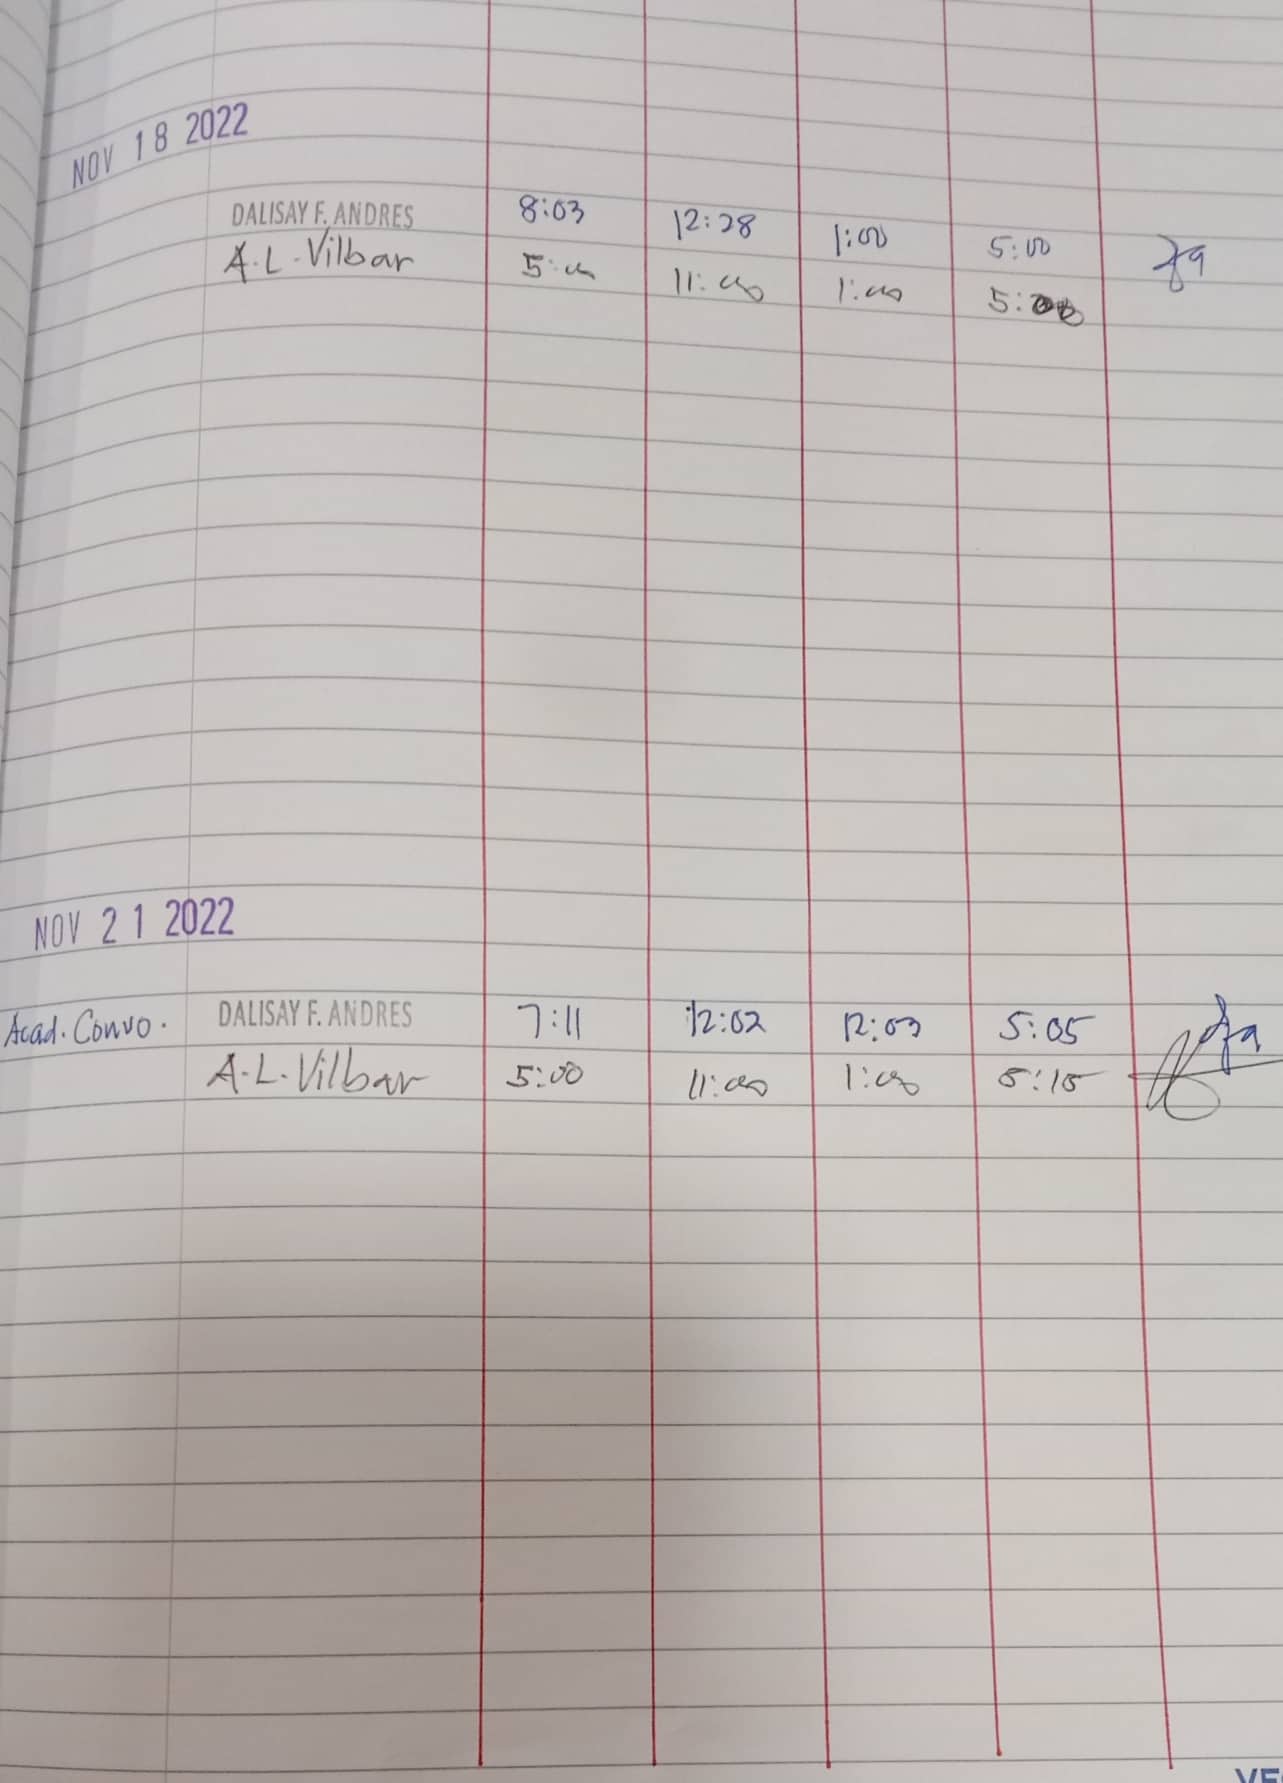 NOV 18 2022
DALISAY F. ANDRES 8:03 12:28 1:00 5:00
A.L. Vilbar 5:00 11:00 1:00 5:00
NOV 21 2022
Acad. Convo. DALISAY F. ANDRES 7:11 12:02 12:03 5:05
A.L. Vilbar 5:00 11:00 1:00 5:15